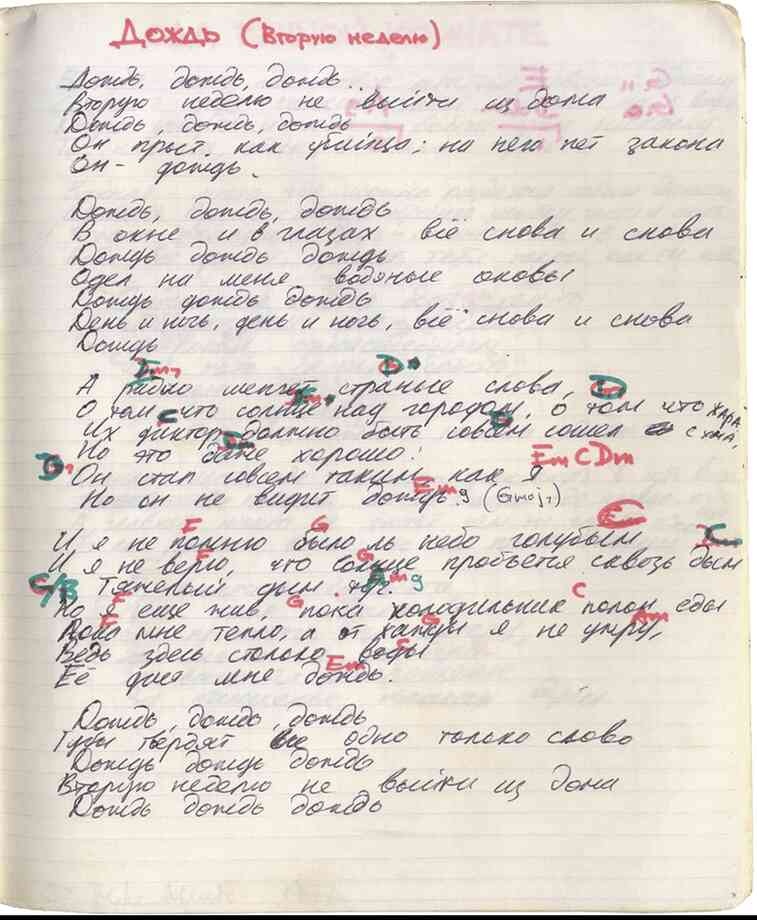 Дождь (Вторую неделю)
Дождь, дождь, дождь...
Вторую неделю не выйти из дома
Дождь, дождь, дождь
Он прыт, как убийца; на него нет закона
Он - дождь.
Дождь, дождь, дождь
В окне и в глазах всё снова и снова
Дождь дождь дождь
Одел на меня водяные оковы
Дождь дождь дождь
День и ночь, день и ночь, всё снова и снова
Дождь
Em7 D
А радио шепчет страные слова, D
О том что солнце над городом, о том что жара
C
Их диктор должно быть совсем сошел с ума,
Но это даже хорошо!
Em C Dm
Он стал совсем таким как я
Но он не видит дождь. Em9 (Gmaj7)
F G C
И я не помню было ль небо голубым
F G C
И я не верю, что солнце пробьется сквозь дым
C/B Тяжелый дым Am9
F G C
Но я еще жив, пока холодильник полон еды
F G Am
мне тепло, а от жажды я не умру,
Ведь здесь столько воды
Em
Её дал мне дождь.
Дождь, дождь, дождь
Тучи твердят все одно только слово
Дождь дождь дождь
Вторую неделю не выйти из дома
Дождь дождь дождь